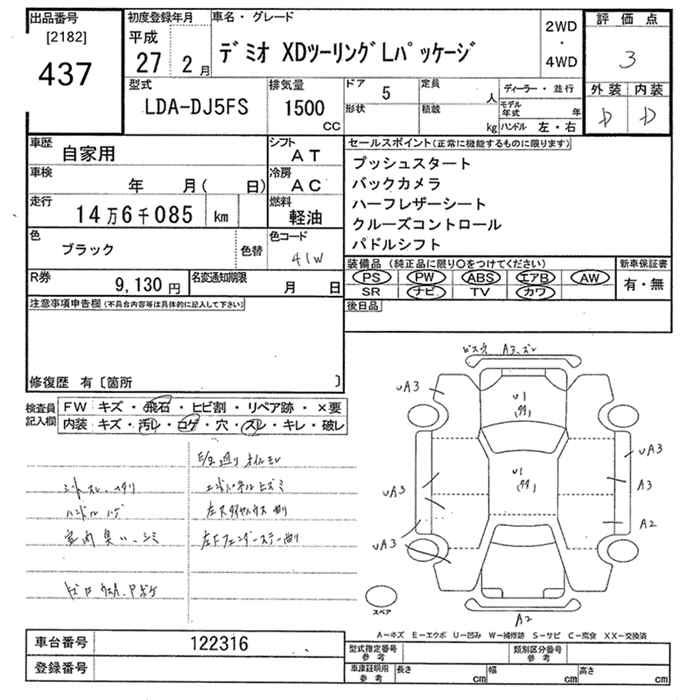 出品番号
[2182]
437
初度登録年月
平成
27 2月
車名・グレード
デミオ XDツーリングLパッケージ
2WD
・
4WD
評価点
3
外装 内装
D D
型式
LDA-DJ5FS
排気量
1500
CC
ドア 5
形状
定員 人
積載 kg
ディーラー・並行
モデル年式 年
ハンドル 左・右
車歴
自家用
シフト
AT
車検
年 月( 日)
冷房
AC
走行
14万6千085 km
燃料
軽油
色
ブラック
色替
色コード
41W
R券
9,130円
名変通知期限
月 日
セールスポイント(正常に機能するものに限ります)
プッシュスタート
バックカメラ
ハーフレザーシート
クルーズコントロール
パドルシフト
装備品(純正品に限り○をつけてください)
PS PW ABS エアB AW
SR ナビ TV カワ
新車保証書
有・無
後日品
注意事項申告欄(不具合内容等は具体的に記入して下さい)
修復歴 有〔箇所 〕
検査員
記入欄
FW キズ・飛石・ヒビ割・リペア跡・×要
内装 キズ・汚レ・コゲ・穴・スレ・キレ・破レ
ハンドル ハゲ
A3
UA3
U1
U1
UA3
UA3
UA3
A3
A2
A2
スペア
A-キズ E-エクボ U-凹み W-補修跡 S-サビ C-腐食 XX-交換済
車台番号
122316
登録番号
型式指定番号
参考
類別区分番号
参考
車庫証明用
参考
長さ cm
幅 cm
高さ cm